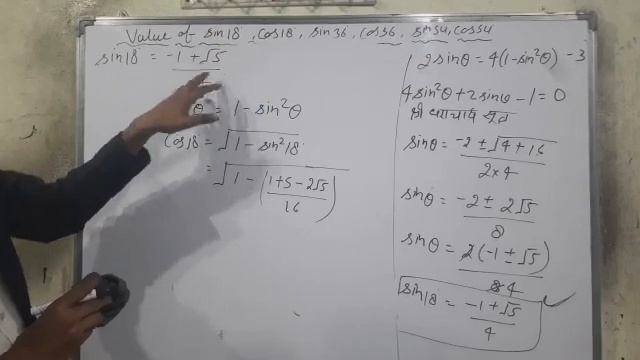 Value of sin18, cos18, sin36, cos36, sin54, cos54
sin18 = -1 + √5
θ = 1 - sin²θ
cos18 = √1 - sin²18
= √1 - (1+5-2√5 / 16)
2sinθ = 4(1-sin²θ) - 3
4sin²θ + 2sinθ - 1 = 0
श्री
sinθ = -2 ± √4 + 16 / 2×4
sinθ = -2 ± 2√5 / 8
sinθ = 2(-1 ± √5) / 8 4
sin18 = -1 + √5 / 4